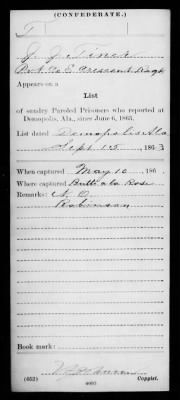 (CONFEDERATE.)
T
J. J. Tinck
Pvt Co E Crescent Regt
Appears on a
List
of sundry Paroled Prisoners who reported at
Demopolis, Ala., since June 6, 1863.
List dated Demopolis Ala
Sept 15, 1863
When captured May 10, 186 .
Where captured Butte a la Rose
Remarks: N. O.
Robinson
Book mark:
Copyist.
(652)